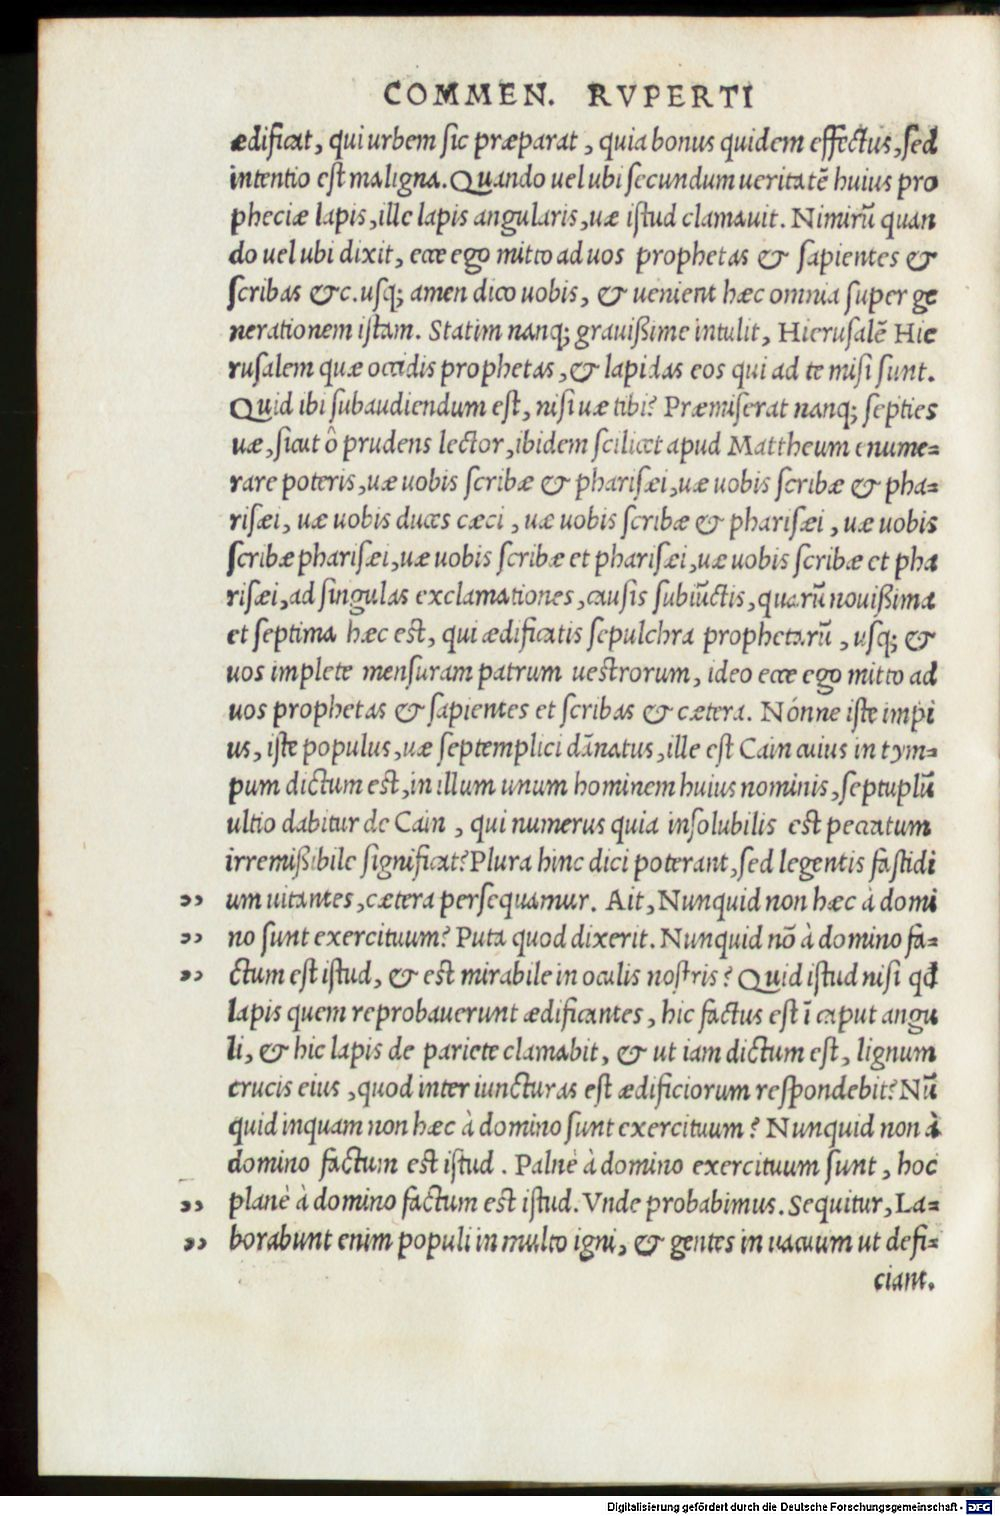 COMMEN. RVPERTI
ædificat, qui urbem sic præparat, quia bonus quidem effectus, sed
intentio est maligna. Quando uel ubi secundum ueritatē huius pro
pheciæ lapis, ille lapis angularis, uæ istud clamauit. Nimirū quan
do uel ubi dixit, ecce ego mitto ad uos prophetas & sapientes &
scribas &c. usq; amen dico uobis, & uenient hæc omnia super ge
nerationem istam. Statim nanq; grauißime intulit, Hierusalē Hie
rusalem quæ occidis prophetas, & lapidas eos qui ad te misi sunt.
Quid ibi subaudiendum est, nisi uæ tibi? Præmiserat nanq; septies
uæ, sicut ô prudens lector, ibidem scilicet apud Mattheum enume=
rare poteris, uæ uobis scribæ & pharisæi, uæ uobis scribæ & pha=
risæi, uæ uobis duces cæci, uæ uobis scribæ & pharisæi, uæ uobis
scribæ pharisæi, uæ uobis scribæ et pharisæi, uæ uobis scribæ et pha
risæi, ad singulas exclamationes, causis subiūctis, quarū nouißima
et septima hæc est, qui ædificatis sepulchra prophetarū, usq; &
uos implete mensuram patrum uestrorum, ideo ecce ego mitto ad
uos prophetas & sapientes et scribas & cætera. Nónne iste impi
us, iste populus, uæ septemplici dānatus, ille est Cain cuius in tym=
pum dictum est, in illum unum hominem huius nominis, septuplū
ultio dabitur de Cain, qui numerus quia insolubilis est peccatum
irremißibile significat? Plura hinc dici poterant, sed legentis fastidi
,, um uitantes, cætera persequamur. Ait, Nunquid non hæc à domi
,, no sunt exercituum? Puta quod dixerit. Nunquid nō à domino fa=
,, ctum est istud, & est mirabile in oculis nostris? Quid istud nisi qđ
lapis quem reprobauerunt ædificantes, hic factus est ī caput angu
li, & hic lapis de pariete clamabit, & ut iam dictum est, lignum
crucis eius, quod inter iuncturas est ædificiorum respondebit? Nū
quid inquam non hæc à domino sunt exercituum? Nunquid non à
domino factum est istud. Palnè à domino exercituum sunt, hoc
,, planè à domino factum est istud. Vnde probabimus. Sequitur, La=
,, borabunt enim populi in multo igni, & gentes in uacuum ut defi=
ciant.
Digitalisierung gefördert durch die Deutsche Forschungsgemeinschaft - DFG